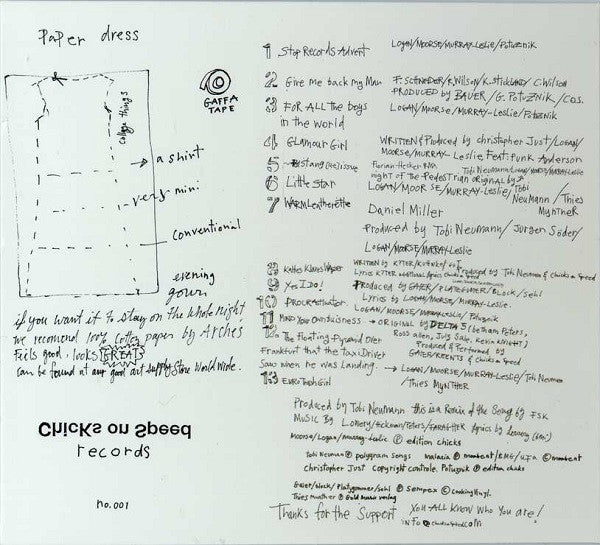 paper dress
college things
GAFFA
TAPE
a shirt
very mini
conventional
evening
gown
if you want it to stay on the whole night
we recomend 100% cotton paper by Arches
feels good, looks GREAT
can be found at any good art supply store world wide.
Chicks on Speed
records
no.001
1 Stop Records Advert LOGAN/MOORSE/MURRAY-LESLIE/POTUZNIK
2 Give me back my Man F. SCHNEIDER/K.WILSON/K.STRICKLAND/C.WILSON
PRODUCED by BAUER/G. POTUZNIK/COS.
3 FOR ALL the boys LOGAN/MOORSE/MURRAY-LESLIE/POTUZNIK
in the world
4 GLAMOUR Girl WRITTEN & Produced by christopher Just/LOGAN/
MOORSE/MURRAY-LESLIE Feat: Punk Anderson
5
Tobi Neumann/Logan/MORSE/MURRAY-LESLIE
night of the Pedestrian ORIGINAL by
6 Little Star LOGAN/MOORSE/MURRAY-LESLIE/Tobi
Neumann/Thies
MYNTHER
7 WARMLeatherette Daniel Miller
Produced by Tobi Neumann/Jurgen Söder/
LOGAN/MOORSE/MURRAY-LESLIE
8 Kaltes Klares Wasser WRITTEN BY
Produced by Tobi Neumann & Chicks on Speed
9 Yes I Do! Produced by GAIER/PLATEGAMER/Block/Sehl
Lyrics by LOGAN/MORSE/MURRAY-LESLIE.
10 PROCRASTINATOR LOGAN/MOORSE/MURRAY-LESLIE/Potuznik
11 MIND YOUR OWN BUSINESS → ORIGINAL by DELTA 5 (Bethan Peters,
Ross Allen, Julz Sale, Kevin KNIGHT)
12 The Floating Pyramid Over Produced & Performed by
Frankfurt that the taxi Driver GAIER/KREENTS & chicks on Speed
Saw when he was Landing. → LOGAN/MOORSE/MURRAY-LESLIE/Tobi Neumann
/Thies MYNTHER
13 EUROTrash Girl
Produced by Tobi Neumann this is a Remix of the Song by FSK
Music By LOWERY/Hickman/Peters/FARAGHER Lyrics by Lowery
Moorse/Logan/Murray-Leslie Ⓟ edition chicks
Tobi Neumann Ⓟ polygram Songs malaria Ⓟ mambeat/BMG/UFA © mambeat
christopher Just copyright controle. Potuznik Ⓟ edition chicks
Gaier/block/Platzgummer/Sehl Ⓟ Sempex © Cooking Vinyl
Thies mynther Ⓟ Gold Music verlag
Thanks for the Support You All Know Who You are!
info@chicksonspeed.com